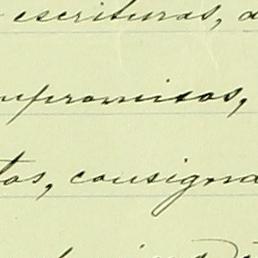 escrituras, d
mpromisos,
tos, consigna